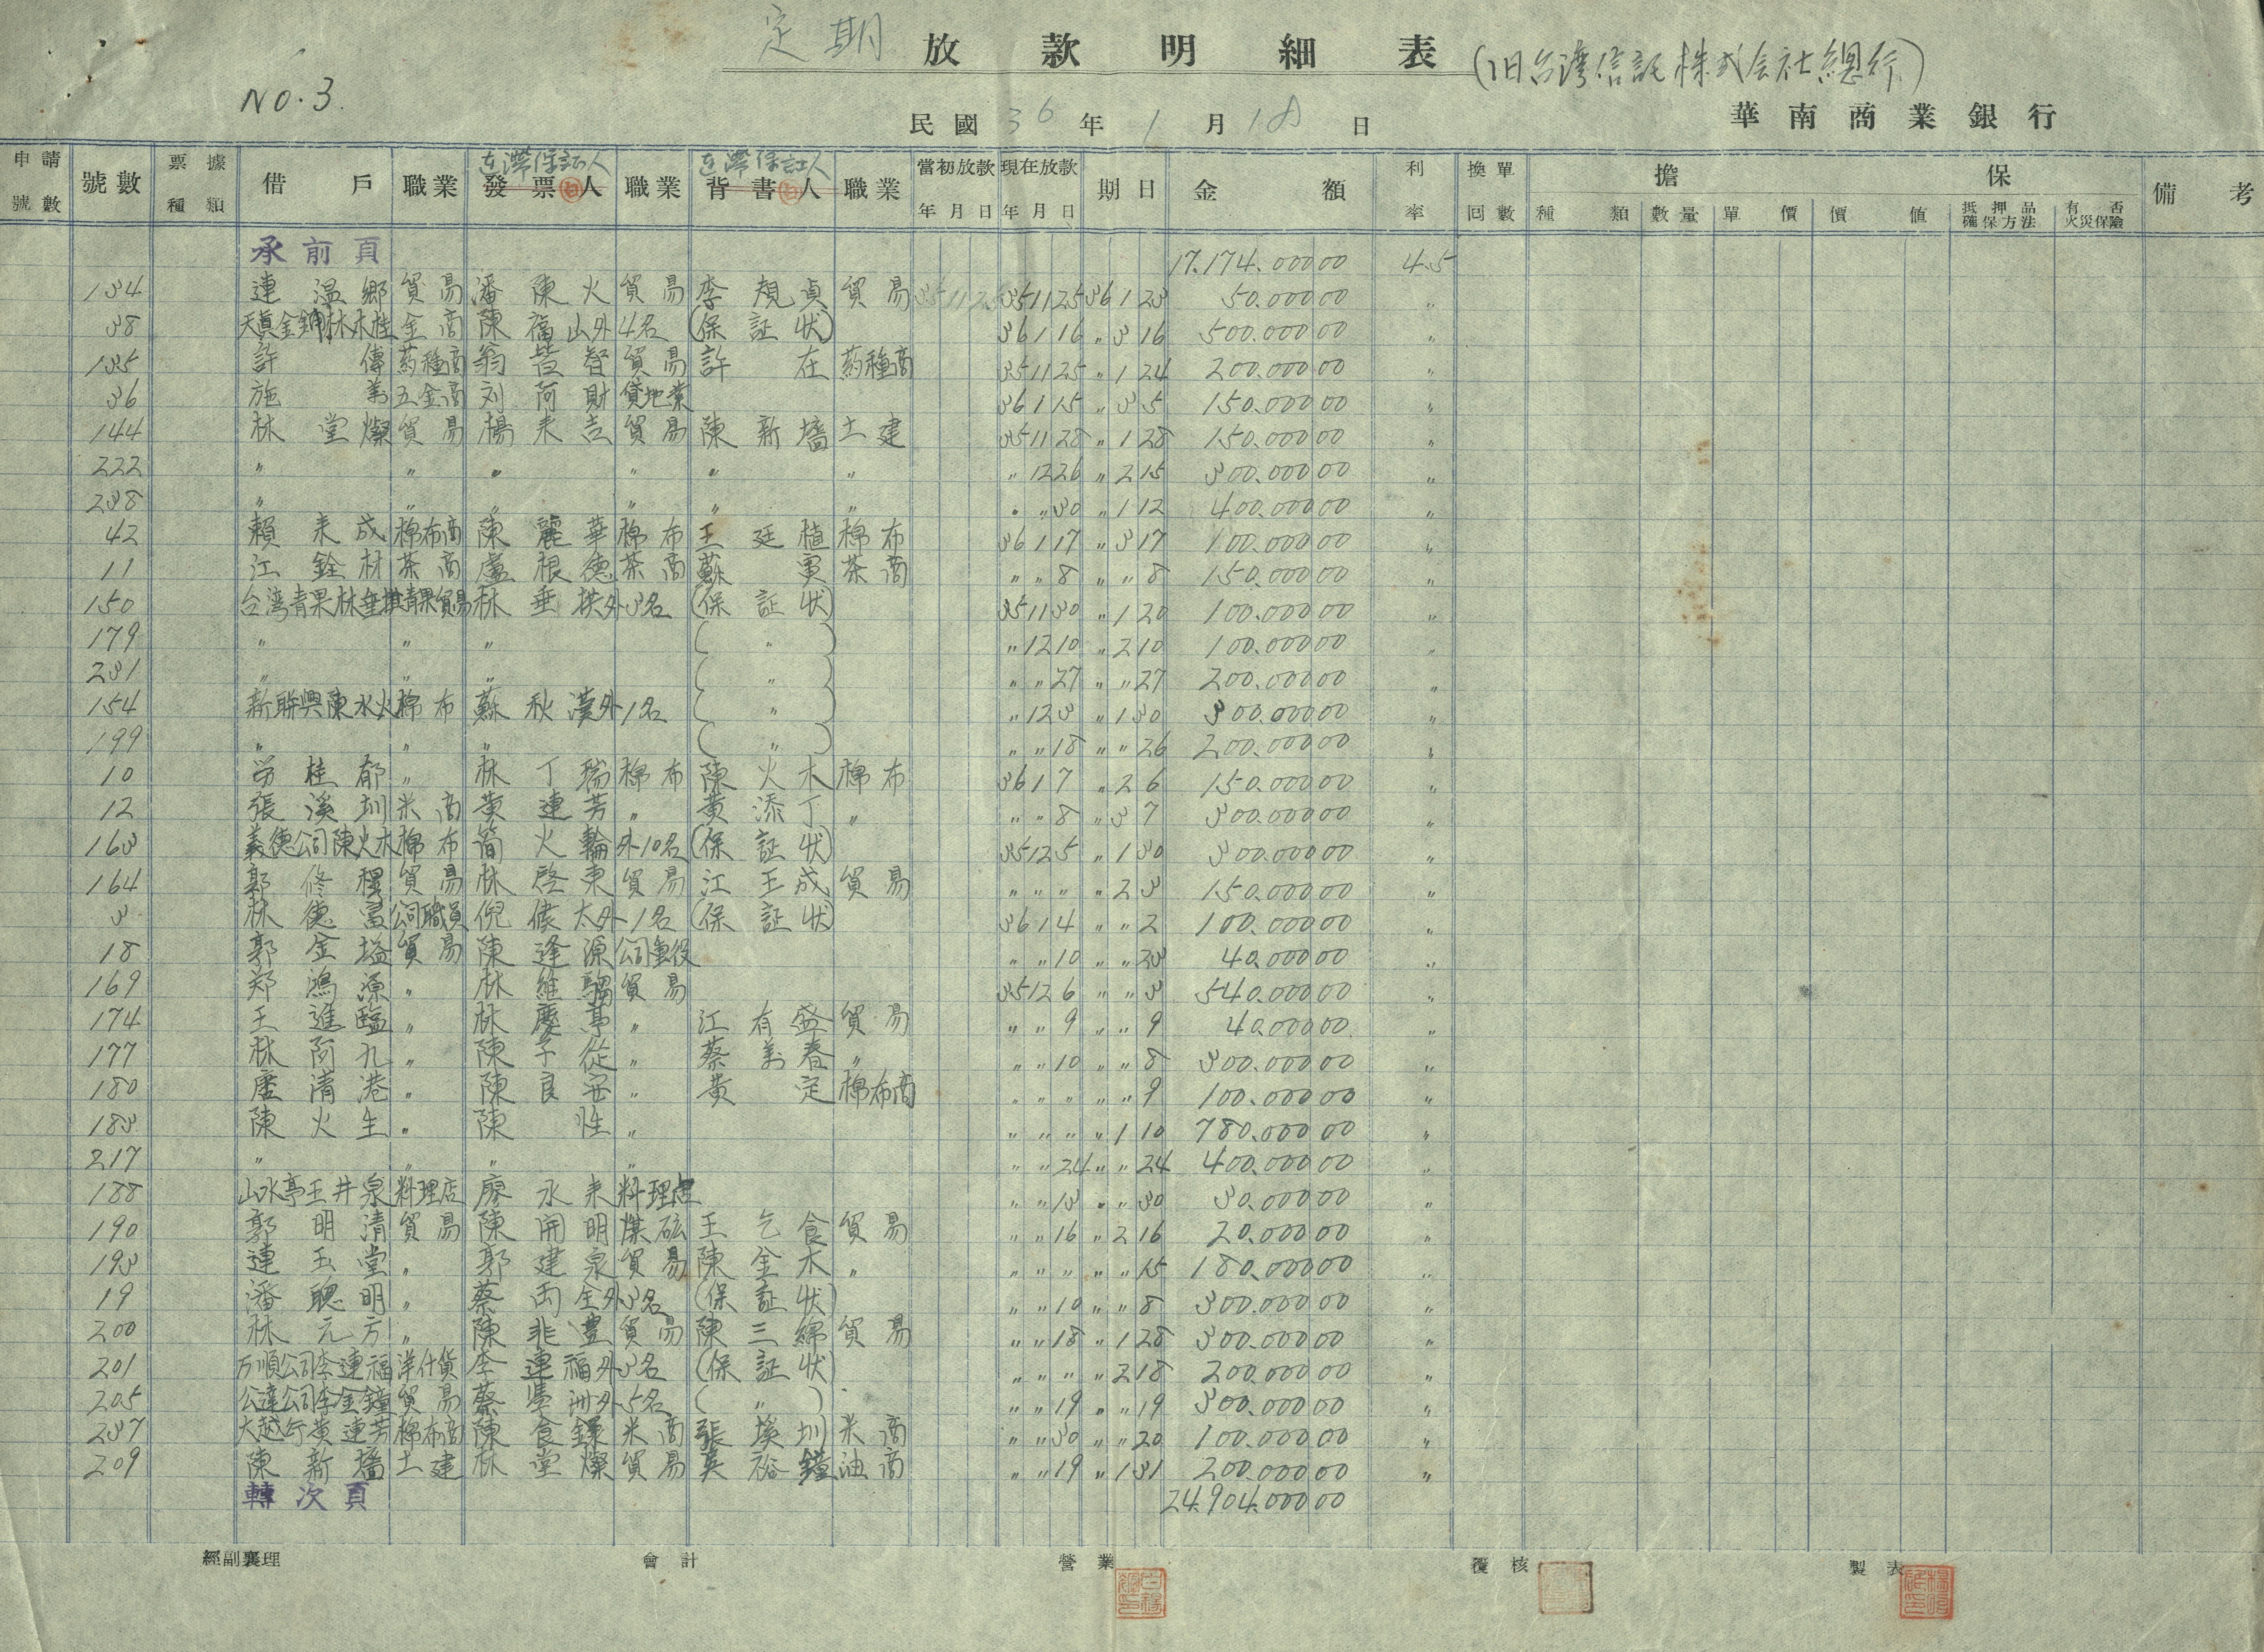 定期 放款明細表 (旧台湾信託株式会社總行)
NO.3.
民國 36 年 1 月 18 日
華南商業銀行
申請號數 號數 票據種類 借戶 職業 連帶保証人 發票人 職業 連帶保証人 背書人 職業 當初放款年月日 現在放款年月日 期日 金額 利率 換單回數 擔保 種類 數量 單價 價值 抵押品確保方法 有否火災保險 備考
承前頁 17.174.000 00 4.5
134 連温鄉 貿易 潘陳火 貿易 李規貞 貿易 35 11 25 35 11 25 36 1 23 50.000 00 〃
38 天真金舖林木桂 金商 陳福山外4名 (保証状) 36 1 16 〃 3 16 500.000 00 〃
135 許傳 葯種商 翁皆智 貿易 許在 葯種商 35 11 25 〃 1 24 200.000 00 〃
36 施 五金商 刘阿財 貸地業 36 1 15 〃 3 5 150.000 00 〃
144 林堂燦 貿易 楊来吉 貿易 陳新墻 土建 35 11 28 〃 1 28 150.000 00 〃
222 〃 〃 〃 〃 〃 〃 〃 12 26 〃 2 15 300.000 00 〃
238 〃 〃 〃 〃 〃 〃 〃 〃 30 〃 1 12 400.000 00 〃
42 賴来成 棉布商 陳麗華 棉布 王廷植 棉布 36 1 17 〃 3 17 100.000 00 〃
11 江銓材 茶商 盧根德 茶商 蘇 茶商 〃 〃 8 〃 〃 8 150.000 00 〃
150 台湾青果林垂拱 青果貿易 林垂拱外3名 (保証状) 35 11 30 〃 1 20 100.000 00 〃
179 〃 〃 〃 ( 〃 ) 〃 12 10 〃 2 10 100.000 00 〃
231 〃 〃 〃 ( 〃 ) 〃 〃 27 〃 〃 27 200.000 00 〃
154 新聯興陳水火 棉布 蘇秋漢外1名 ( 〃 ) 〃 12 3 〃 1 30 300.000 00 〃
199 〃 〃 〃 ( 〃 ) 〃 〃 18 〃 〃 26 200.000 00 〃
10 労桂郁 〃 林丁瑞 棉布 陳火木 棉布 36 1 7 〃 2 6 150.000 00 〃
12 張溪圳 米商 黄連芳 〃 黄添丁 〃 〃 〃 8 〃 3 7 300.000 00 〃
163 義德公司陳火木 棉布 簡火輪外10名 (保証状) 35 12 5 〃 1 30 300.000 00 〃
164 郭修稷 貿易 林啓東 貿易 江王成 貿易 〃 〃 〃 〃 2 3 150.000 00 〃
3 林德富 公司職員 倪侯太外1名 (保証状) 36 1 4 〃 〃 2 100.000 00 〃
18 郭金塩 貿易 陳逢源 公司重役 〃 〃 10 〃 〃 23 40.000 00 〃
169 郑鴻源 〃 林維 貿易 35 12 6 〃 〃 3 540.000 00 〃
174 王進臨 〃 林慶亭 〃 江有盛 貿易 〃 〃 9 〃 〃 9 40.000 00 〃
177 林阿九 〃 陳子從 〃 蔡萬春 〃 〃 〃 10 〃 〃 8 300.000 00 〃
180 盧清港 〃 陳良安 〃 黄定 棉布商 〃 〃 〃 〃 〃 9 100.000 00 〃
183 陳火生 〃 陳性 〃 〃 〃 〃 〃 1 10 780.000 00 〃
217 〃 〃 〃 〃 〃 〃 24 〃 〃 24 400.000 00 〃
188 山水亭王井泉 料理店 廖永来 料理店 〃 〃 13 〃 〃 30 30.000 00 〃
190 郭明清 貿易 陳開明 煤砿 王乞食 貿易 〃 〃 16 〃 2 16 20.000 00 〃
193 連玉堂 〃 郭建泉 貿易 陳金木 〃 〃 〃 〃 〃 〃 15 180.000 00 〃
19 潘聰明 〃 蔡両全外3名 (保証状) 〃 〃 10 〃 〃 8 300.000 00 〃
200 林元方 〃 陳非豊 貿易 陳三綿 貿易 〃 〃 18 〃 1 28 300.000 00 〃
201 万順公司李連福 洋什貨 李連福外3名 (保証状) 〃 〃 〃 〃 2 18 200.000 00 〃
205 公達公司李金鐘 貿易 蔡 洲外5名 ( 〃 ) 〃 〃 19 〃 〃 19 300.000 00 〃
237 大越行黄連芳 棉布商 陳食 米商 張溪圳 米商 〃 〃 30 〃 〃 20 100.000 00 〃
209 陳新墻 土建 林堂燦 貿易 吴裕鐘 油商 〃 〃 19 〃 1 31 200.000 00 〃
轉次頁 24.904.000 00
經副襄理 會計 營業 覆核 製表